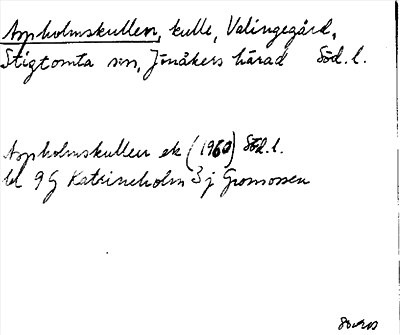 Aspholmskullen, kulle, Valingegård,
Stigtomta sn, Jönåkers härad Söd. l.
Aspholmskullen ek (1960) Söd. l.
bl 9G Katrineholm 3j Gromossen